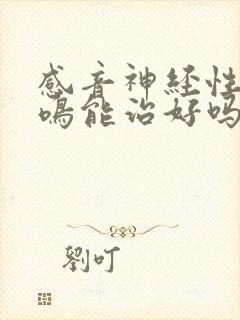 感音神经性
鸣能治好吗
劉叮